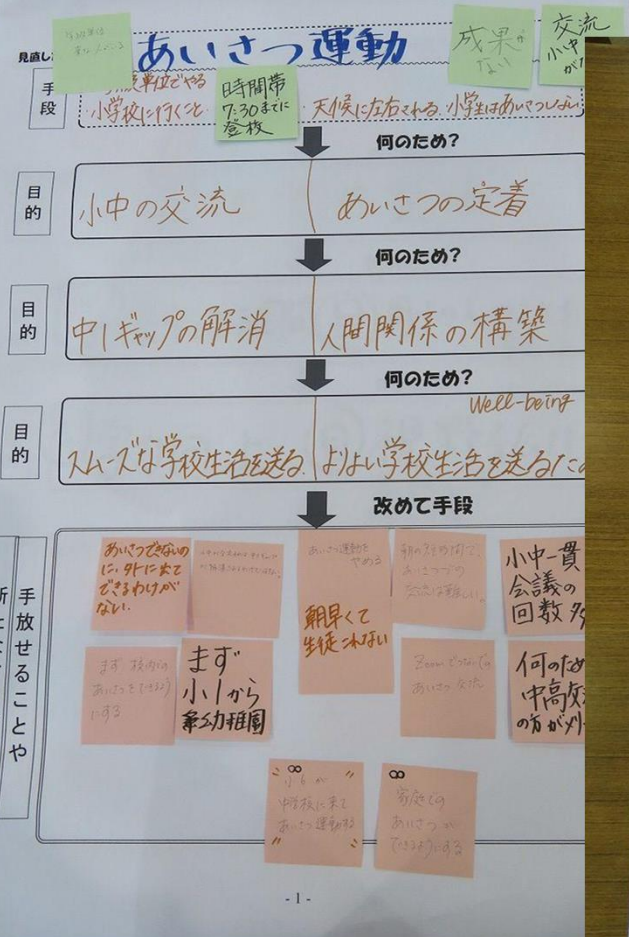 見直し
あいさつ運動
成果が
ない
交流
小中
手段
単位でやる
・小学校に行くこと
時間帯
7:30までに
登校
・天候に左右される.小学生はあいさつしない
何のため?
目的
小中の交流
あいさつの定着
何のため?
目的
中1ギャップの解消
人間関係の構築
何のため?
目的
Well-being
スムーズな学校生活を送る.
よりよい学校生活を送るため
改めて手段
手放せることや
あいさつできないの
に、外に出て
できるわけが
ない.
あいさつ運動を
やめる
朝早くて
生徒これない
朝の短時間で、
あいさつでの
交流は難しい。
小中一貫
会議の
回数
まず 校内での
あいさつをできるよう
にする
まず
小1から
幼稚園
Zoomでつないでの
あいさつ交流
何のため
中高交
の方がメリ
小6が
中学校に来て
あいさつ運動する
家庭での
あいさつが
できるようにする
- 1 -